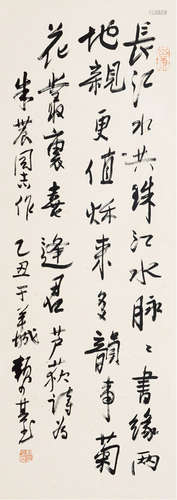 長江水共珠江水脉〻書緣兩
地親更值秋來多韻事菊
花叢裏喜逢君 芦荻诗为
朱農同志作 乙丑于羊城 賴少其书